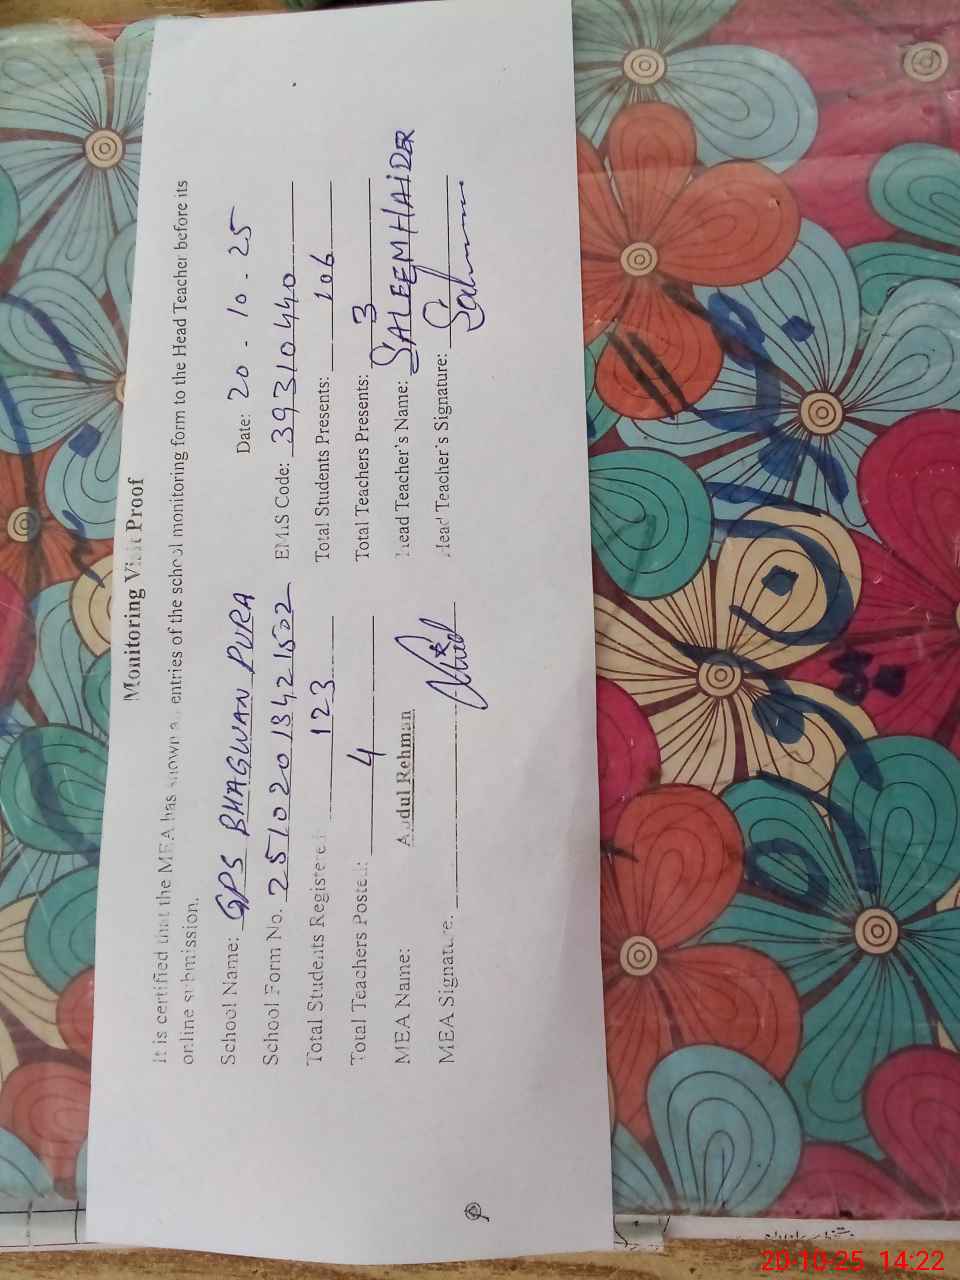 Monitoring Visit Proof
It is certified that the MEA has shown all entries of the school monitoring form to the Head Teacher before its
online submission.
Date: 20-10-25
School Name: GPS BHAGWAN PURA
School Form No. 25102018421502 EMIS Code: 39310440
Total Students Registered: 123 Total Students Presents: 106
Total Teachers Posted: 4 Total Teachers Presents: 3
MEA Name: Abdul Rehman Head Teacher's Name: SALEEM HAIDER
MEA Signature: Head Teacher's Signature:
20-10-25 14:22